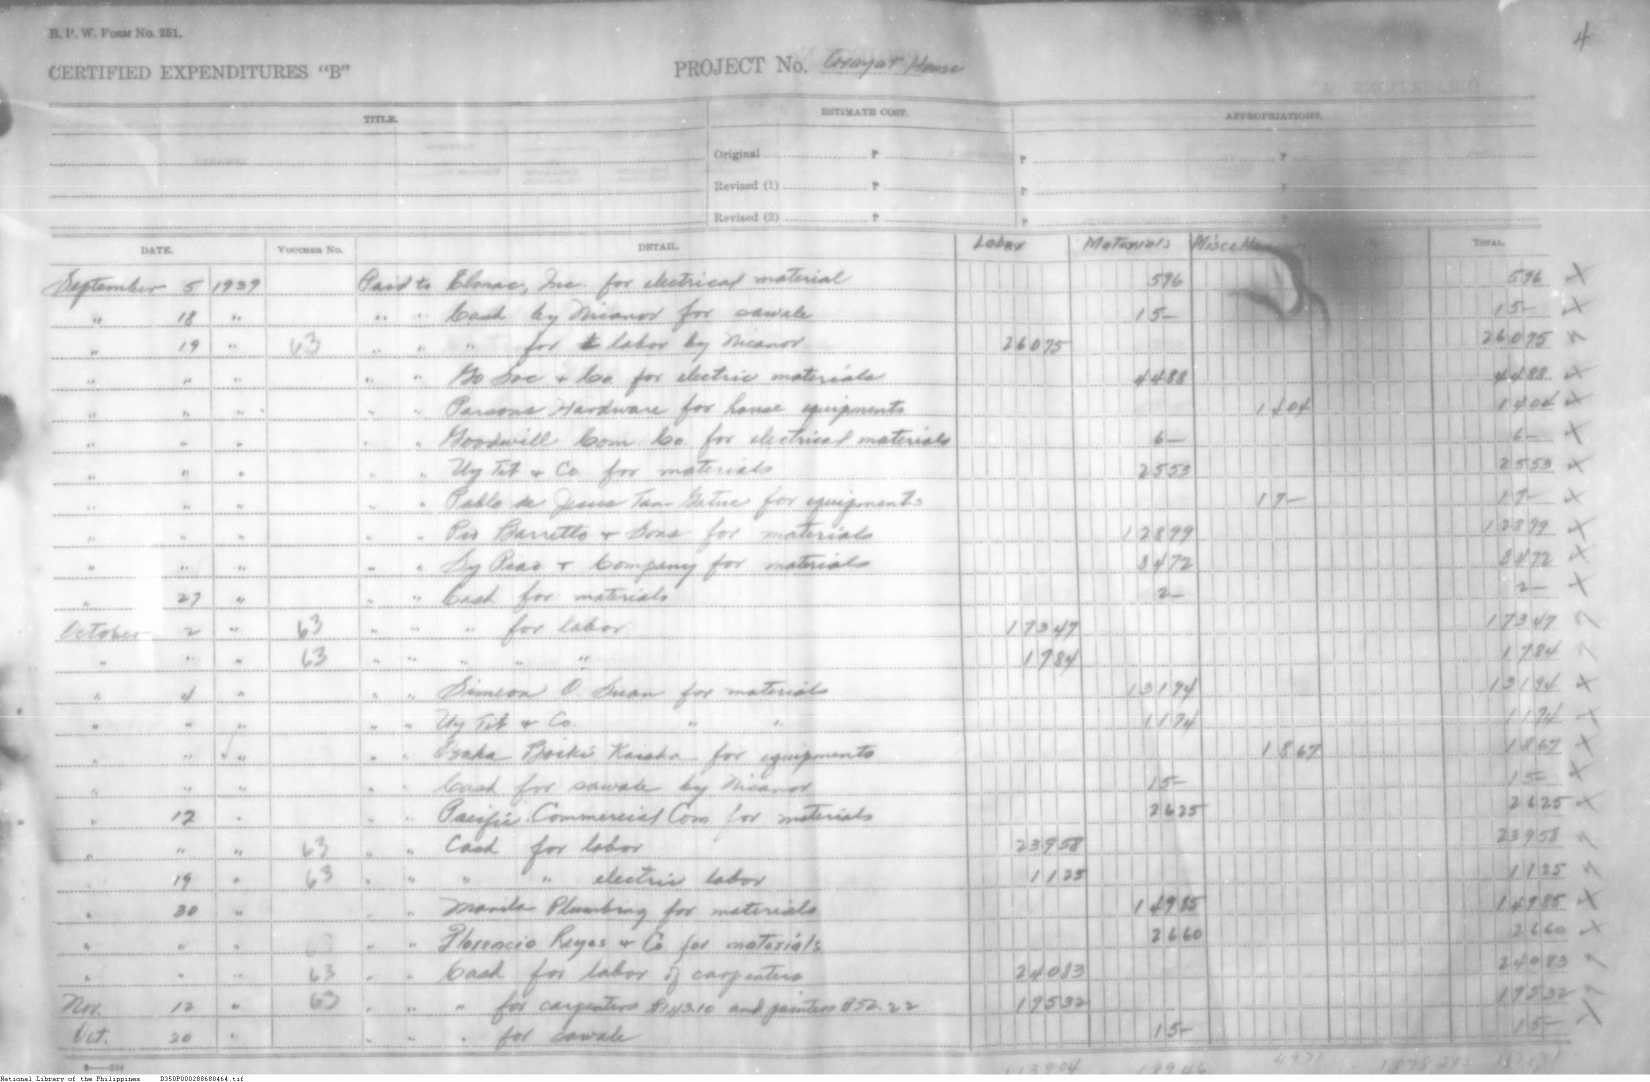 B. P. W. Form No. 251.
4
CERTIFIED EXPENDITURES “B”
PROJECT No. House
TITLE.
ESTIMATE COST.
APPROPRIATIONS.
Original ₱ ₱ ₱
Revised (1) ₱ ₱ ₱
Revised (2) ₱ ₱ ₱
DATE. VOUCHER No. DETAIL. Labor Materials TOTAL.
September 5 1939 Paid to Elmac, Inc. for electrical material 596 596 X
" 18 " " " Cash by Nicanor for sawale 15- 15- X
" 19 " 63 " " " for labor by Nicanor 26075 26075
" " " " " Go Soc & Co. for electric materials 4488 4488 X
" " " " " Parsons Hardware for house equipments 1404 1404 X
" " " " " Goodwill Com. Co. for electrical materials 6- 6- X
" " " " " Uy Tit & Co. for materials 2553 2553 X
" " " " " Pablo de Jesus for equipments 17- 17- X
" " " " " Pio Barretto & Sons for materials 12899 12899 X
" " " " " Sy & Company for materials 8472 8472 X
" 27 " " " Cash for materials 2- 2- X
October 2 " 63 " " " for labor 17347 17347
" " " 63 " " " " " 1784 1784
" 4 " " " Simeon O. for materials 13194 13194 X
" " " " " Uy Tit & Co. " " 1174 1174 X
" " " " " Osaka Boeki Kaisha for equipments 1867 1867 X
" " " " " Cash for sawale by Nicanor 15- 15- X
" 12 " " " Pacific Commercial Com for materials 2625 2625 X
" " " 63 " " Cash for labor 23958 23958
" 19 " 63 " " " " electric labor 1125 1125
" 30 " " " Manila Plumbing for materials 14985 14985 X
" " " " " Florencio Reyes & Co for materials 2660 2660 X
" " " 63 " " Cash for labor of carpenters 24083 24083
Nov. 12 " 63 " " " for carpenters ₱143.10 and painters ₱52.22 19532 19532
Oct. 20 " " " " for sawale 15- 15- X
National Library of the Philippines D350P000288680464.tif